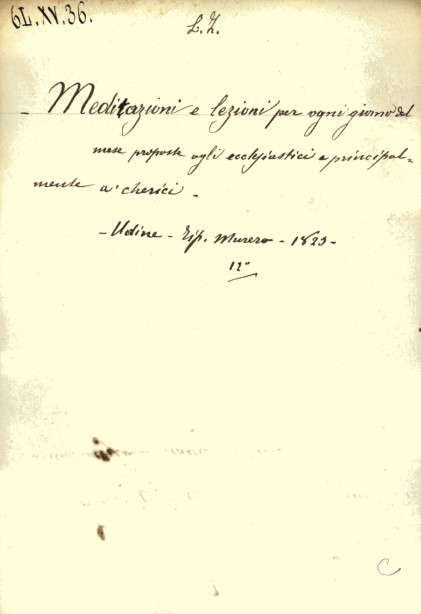 6L.XV.36.
L.Z.
- Meditazioni e lezioni per ogni giorno del
mese proposte agli ecclesiastici e principal=
mente a' cherici -
- Udine - Tip. Murero - 1829 -
12°
C